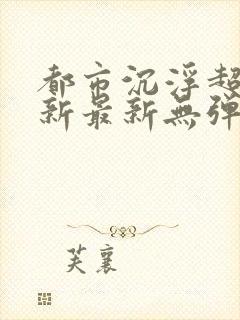 都市沉浮超
新最新無弹
芙襄